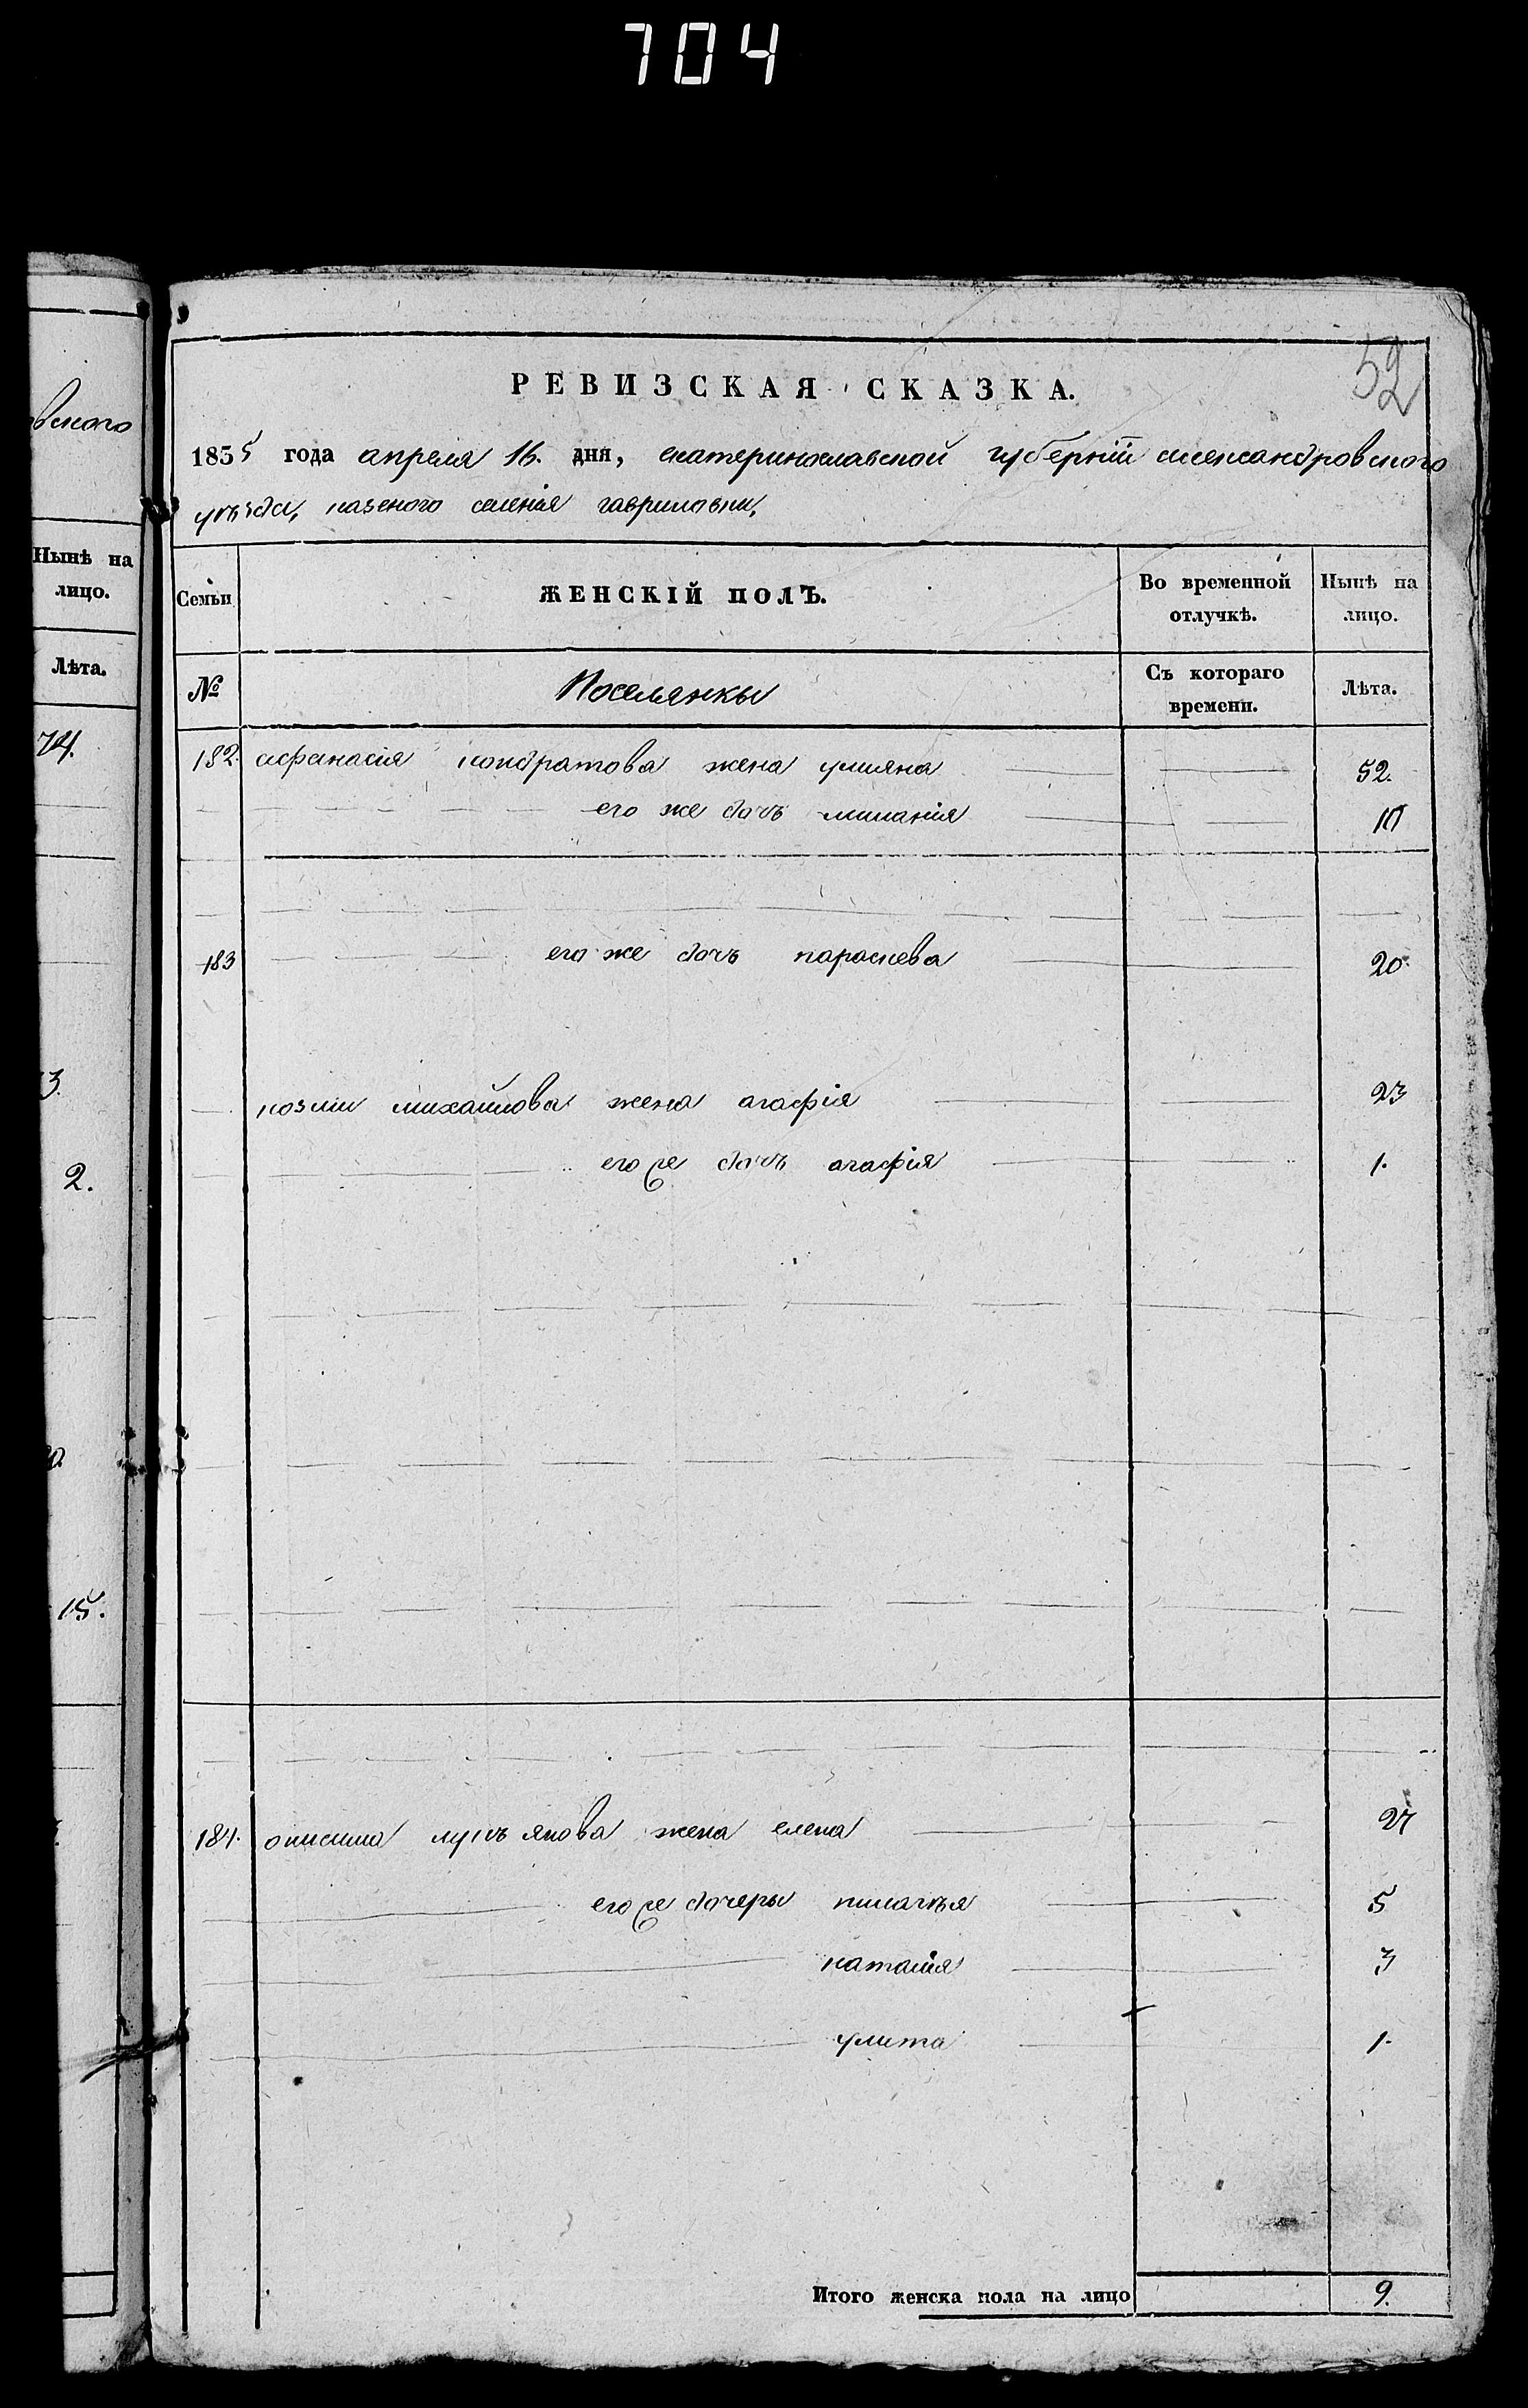 704
вского
Нынѣ на
лицо.
Лѣта.
74.
3.
2.
15.
52
РЕВИЗСКАЯ СКАЗКА.
1835 года апреля 16. дня, екатеринославской губерніи александровского
уѣзда, казеного селенія гавриловки,
Семьи ЖЕНСКІЙ ПОЛЪ. Во временной отлучкѣ. Нынѣ на лицо.
№ Поселянкы Съ котораго времени. Лѣта.
182. афанасія кондратова жена улияна 52.
его же дочъ миланія
183 его же дочъ параскева 20.
козми михайлова жена агафія 23
его же дочъ агафія 1.
184. онисима лукъянова жена елена 27
его же дочеры пилагъя 5
наталія 3
улита 1.
Итого женска пола на лицо 9.